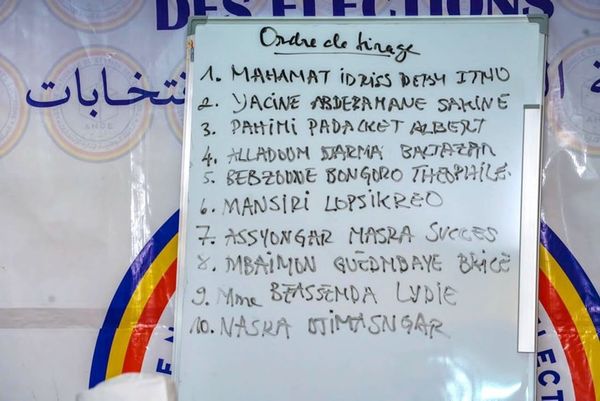 DES ELECTIONS
Ordre de tirage
1. MAHAMAT IDRISS DEBY ITNO
2. YACINE ABDERAMANE SAKINE
3. PAHIMI PADACKET ALBERT
4. ALLADOUM DJARMA BALTAZAR
5. BEBZOUNE BONGORO THEOPHILE
6. MANSIRI LOPSIKREO
7. ASSYONGAR MASRA SUCCES
8. MBAIMON GUEDMBAYE BRICE
9. Mme BEASSEMDA LYDIE
10. NASRA DJIMASNGAR